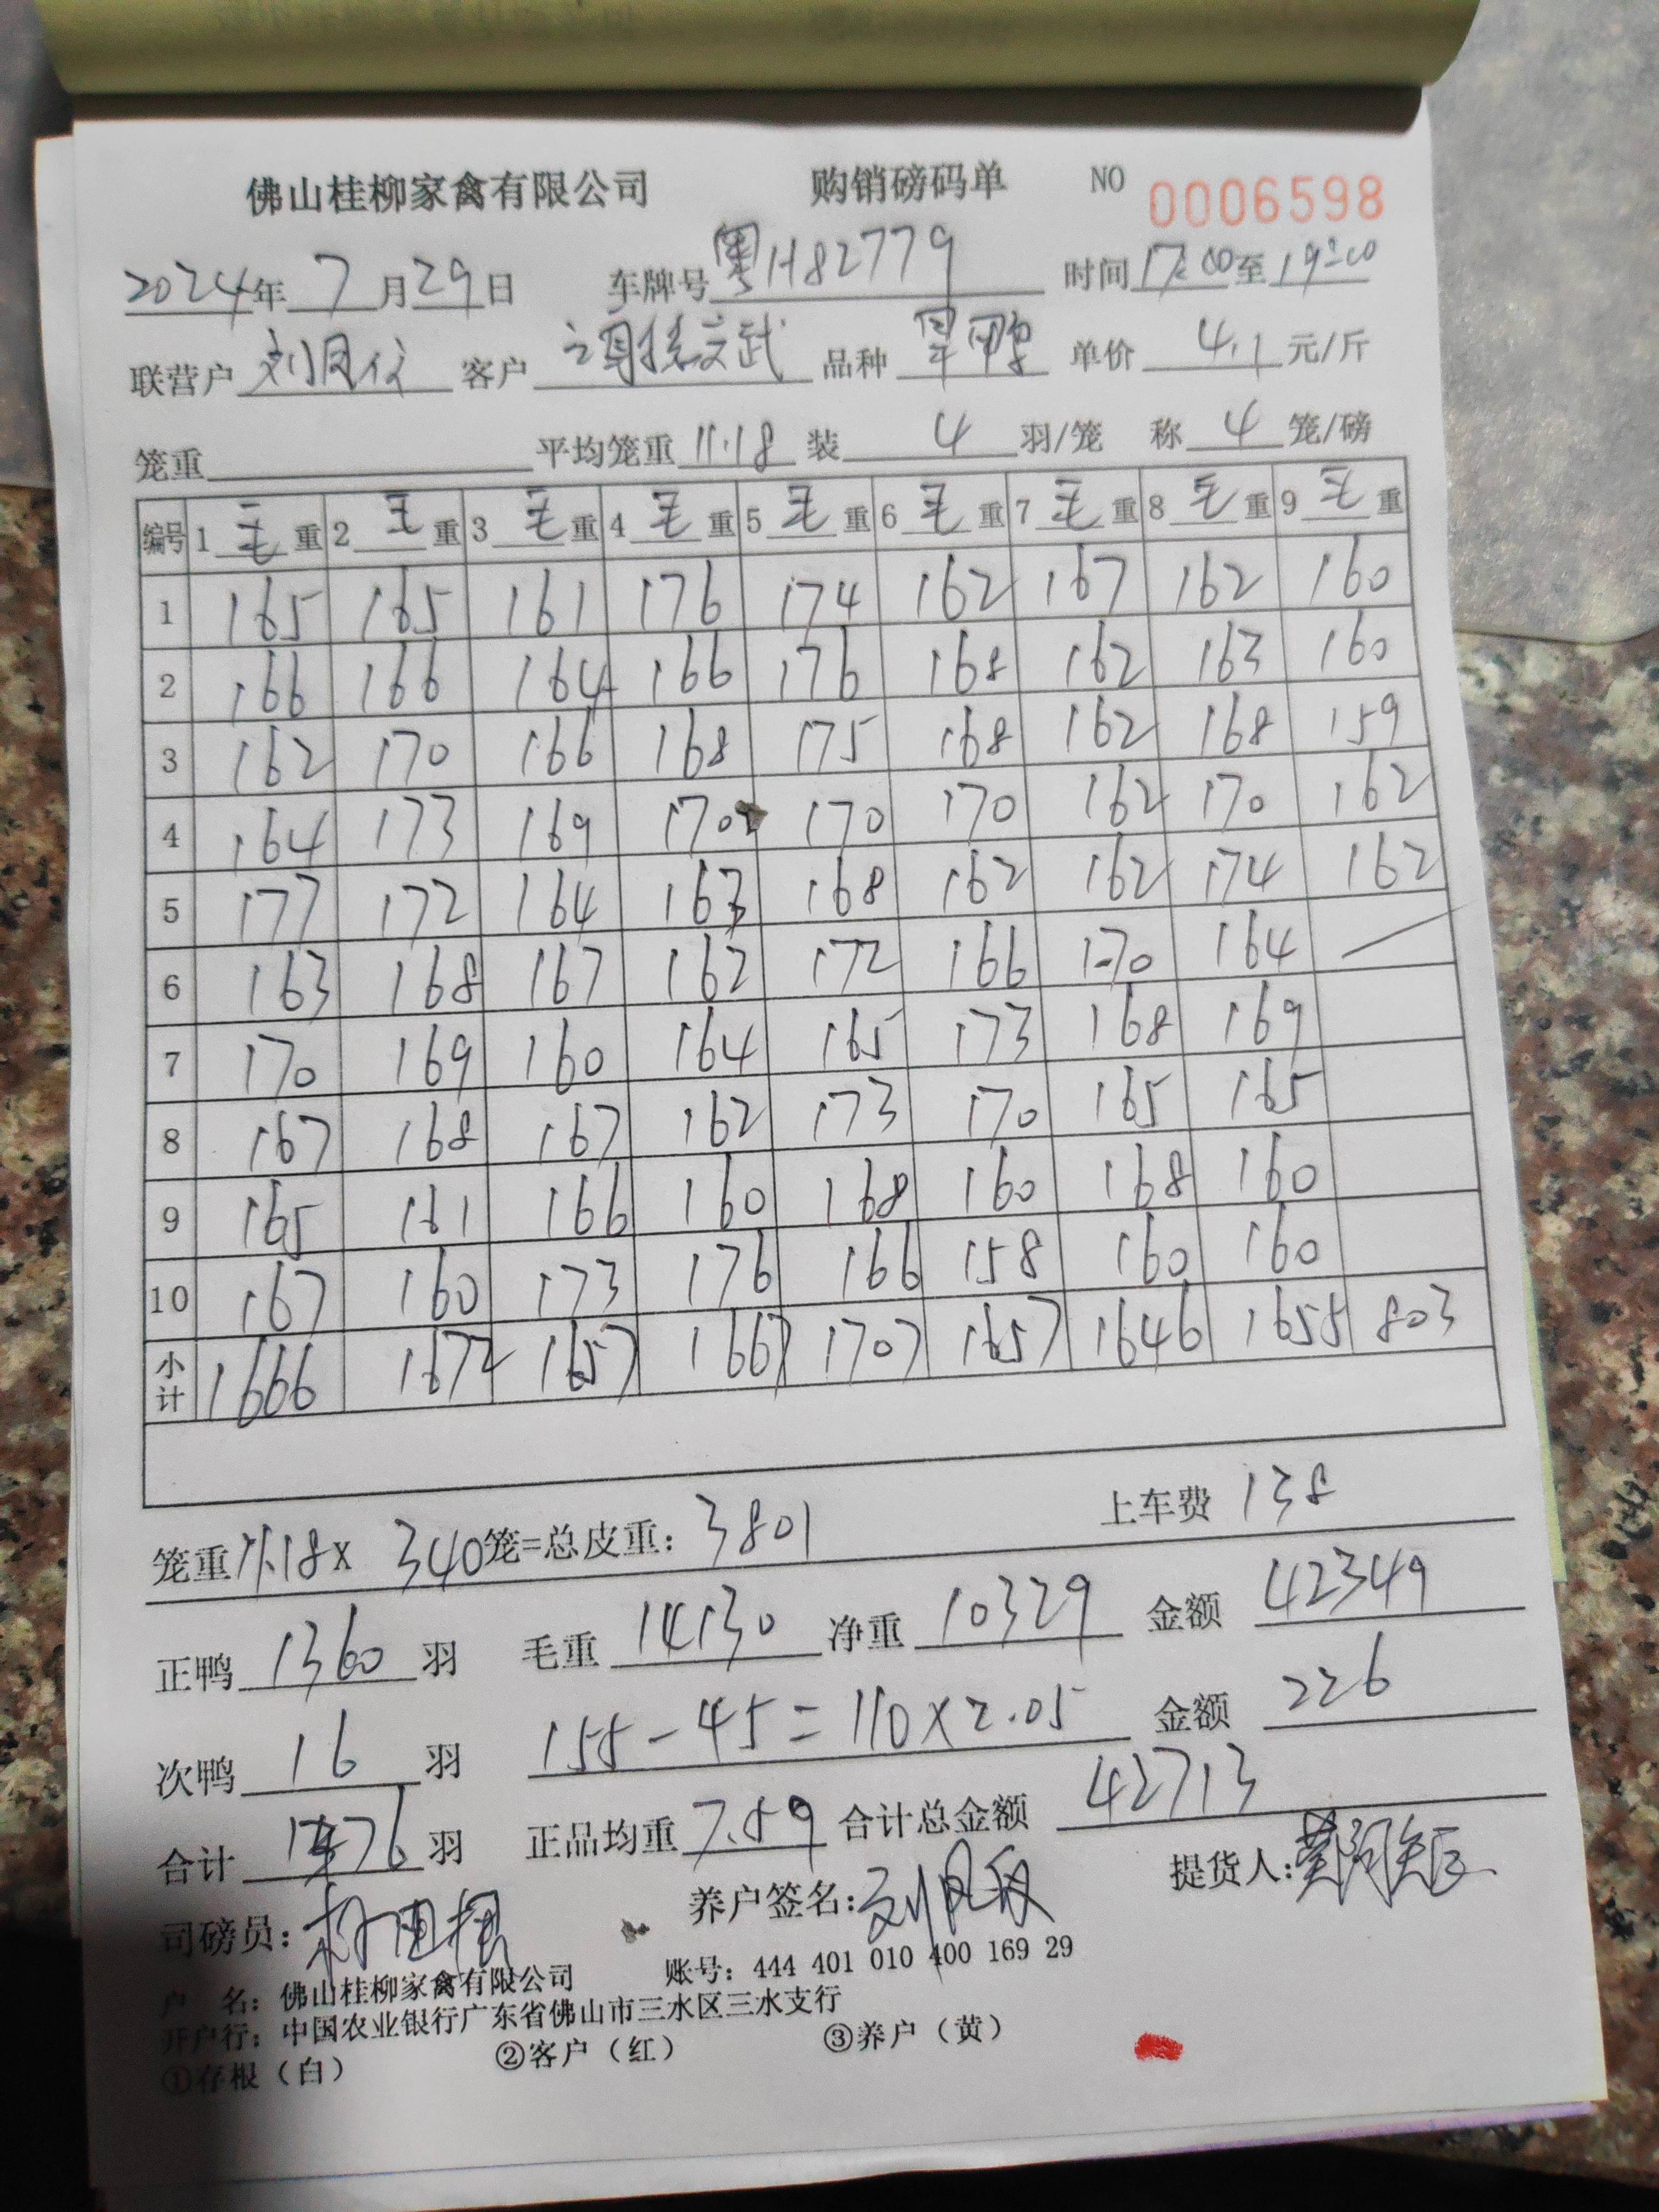 佛山桂柳家禽有限公司 购销磅码单 NO 0006598
2024年 7 月 29 日 车牌号 粤H82779 时间 17:00 至 19:00
联营户 刘 客户 文武 品种 鸭 单价 4.1 元/斤
笼重 平均笼重 11.18 装 4 羽/笼 称 4 笼/磅
编号 1 毛 重 2 毛 重 3 毛 重 4 毛 重 5 毛 重 6 毛 重 7 毛 重 8 毛 重 9 毛 重
1 165 165 161 176 174 162 167 162 160
2 166 166 164 166 176 168 162 163 160
3 162 170 166 168 175 168 162 168 159
4 164 173 169 170 170 170 162 170 162
5 177 172 164 163 168 162 162 174 162
6 163 168 167 162 172 166 170 164
7 170 169 160 164 165 173 168 169
8 167 168 167 162 173 170 165 165
9 165 161 166 160 168 160 168 160
10 167 160 173 176 166 158 160 160
小计 1666 1672 1657 1667 1707 1657 1646 1655 803
笼重 11.18 x 340 笼=总皮重: 3801 上车费 138
正鸭 1360 羽 毛重 14130 净重 10329 金额 42349
次鸭 16 羽 155-45=110×2.05 金额 226
合计 1376 羽 正品均重 7.59 合计总金额 42713
司磅员: 养户签名: 刘 提货人:
户 名: 佛山桂柳家禽有限公司 账号: 444 401 010 400 169 29
开户行: 中国农业银行广东省佛山市三水区三水支行
①存根(白) ②客户(红) ③养户(黄)